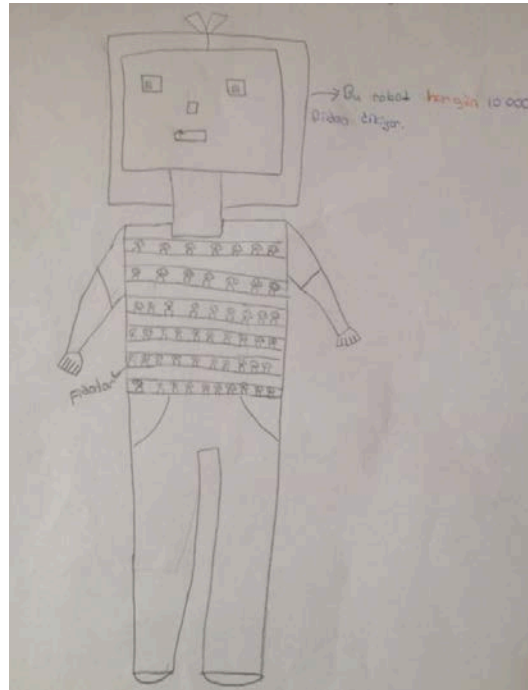 → Bu robot hergün 10 000
Didan dikiyor.
Fidanlar